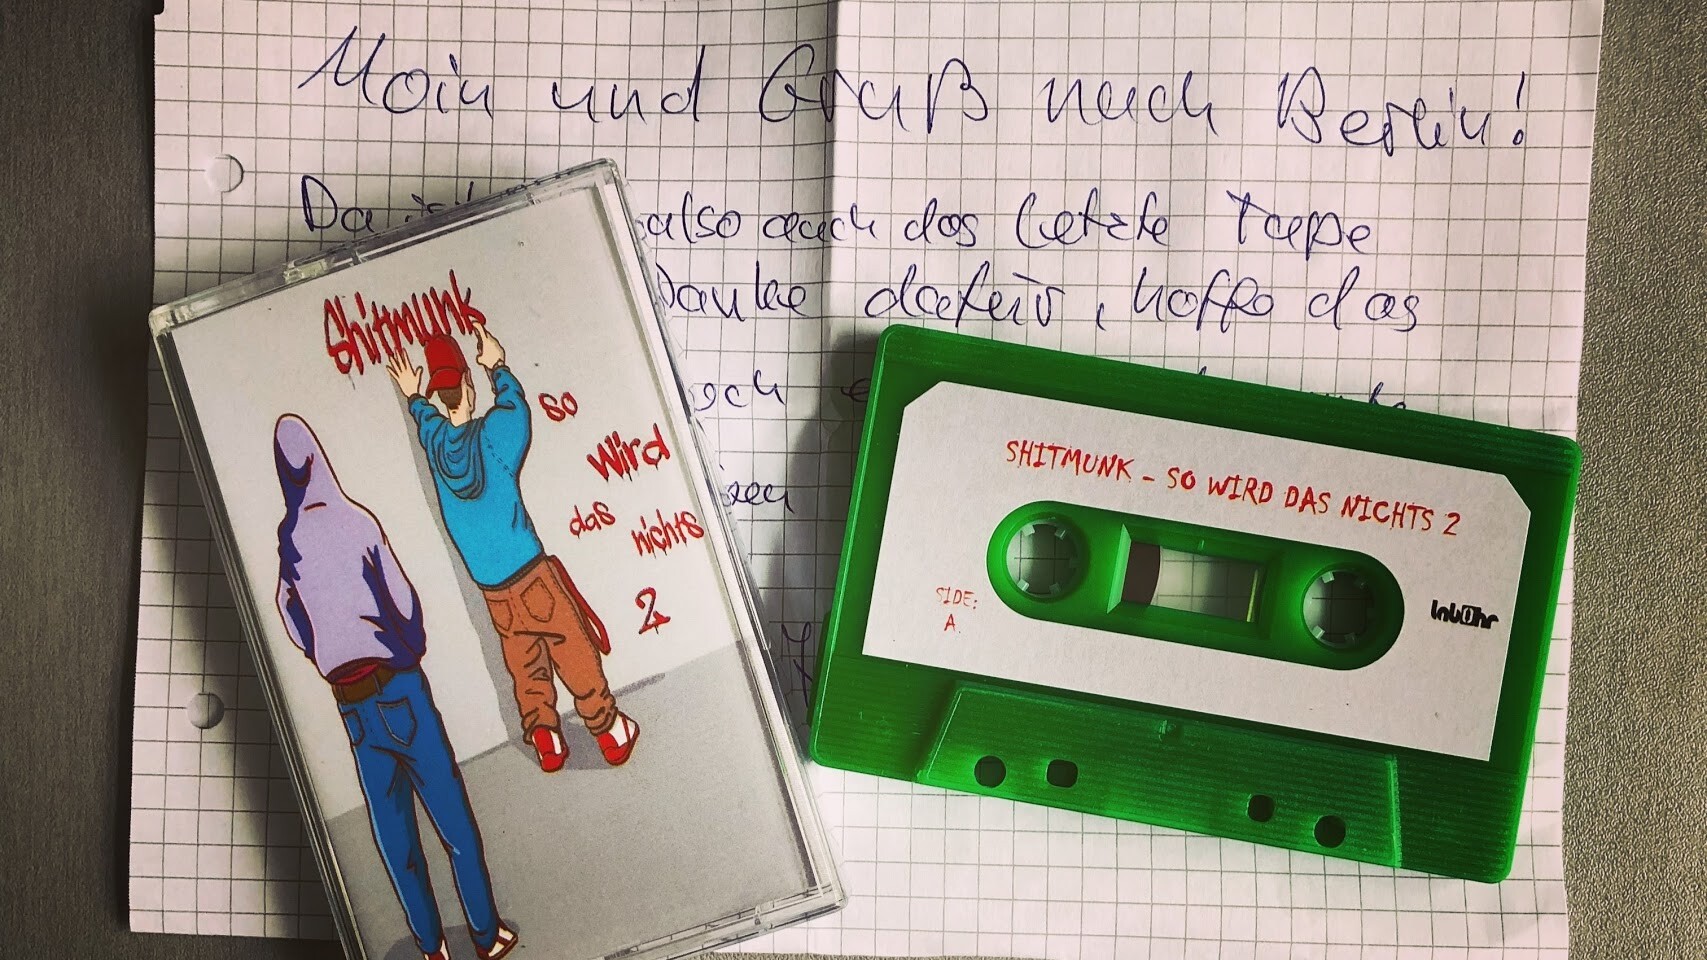 Moin und Gruß nach Berlin!
Da also auch das letzte Tape
Danke dafür, hoffe das
Shitmunk
so
wird
das
nichts
2
SHITMUNK - SO WIRD DAS NICHTS 2
SIDE:
A.